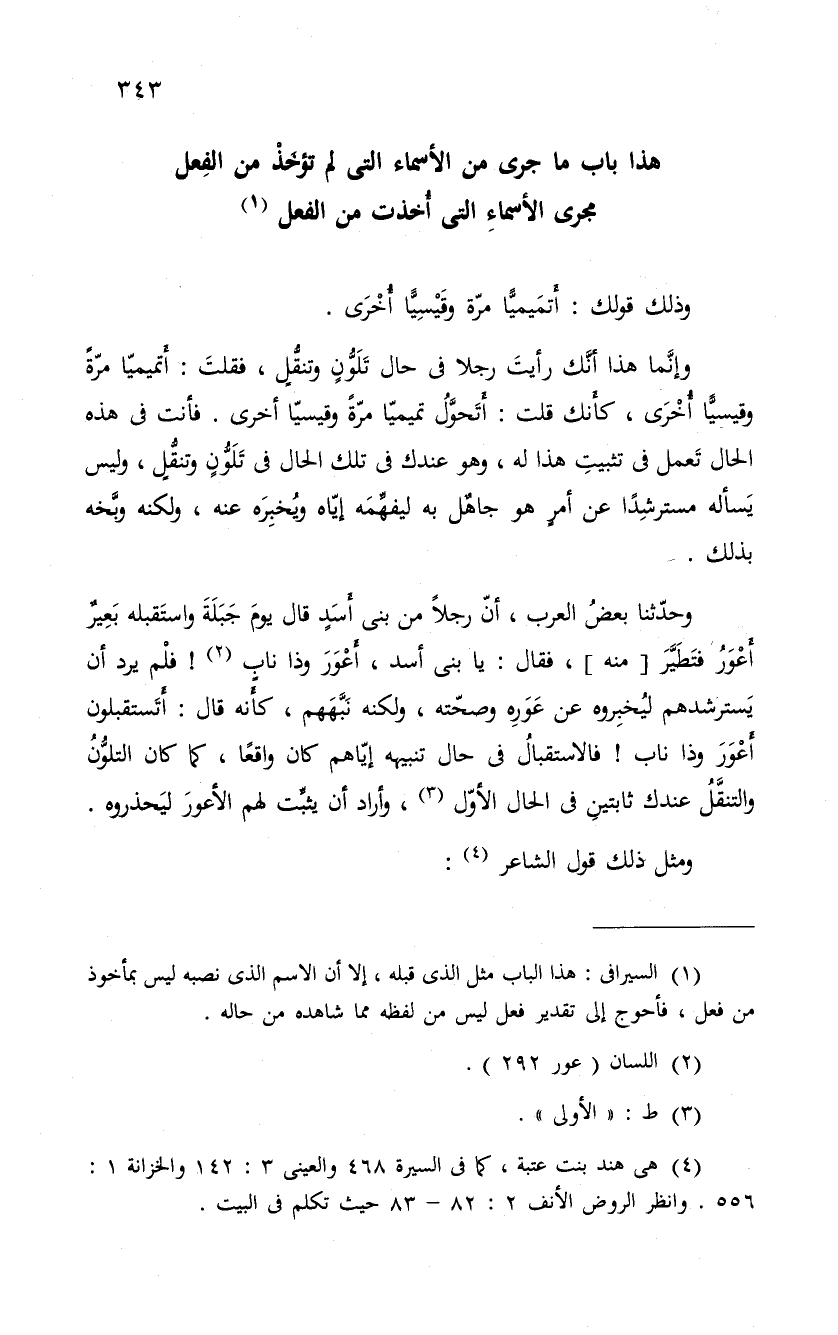 ٣٤٣
هذا باب ما جرى من الأسماء التى لم تؤخَذْ من الفِعل
مجرى الأسماءِ التى أُخذت من الفعل (١)
وذلك قولك : أَتمَيميًّا مرّة وقَيْسِيًّا أُخْرَى .
وإنَّما هذا أنَّك رأيتَ رجلا فى حال تَلَوُّنٍ وتنقُّلٍ ، فقلتَ : أَتميميّا مرّةً
وقيسيًّا أُخْرَى ، كأَنك قلت : أَتَحوَّلُ تميميّا مرّةً وقيسيّا أخرى . فأنت فى هذه
الحال تَعمل فى تثبيتِ هذا له ، وهو عندك فى تلك الحال فى تَلَوُّنٍ وتنقُّلٍ ، وليس
يَسأله مسترشِدًا عن أمرٍ هو جاهلٌ به ليفهِّمَه إيّاه ويُخبِرَه عنه ، ولكنه وبَّخه
بذلك .
وحدّثنا بعضُ العرب ، أنّ رجلاً من بنى أَسَدٍ قال يومَ جَبَلَةَ واستَقبله بَعِيرٌ
أَعْوَرُ فتَطَيَّرَ [ منه ] ، فقال : يا بنى أسد ، أَعْوَرَ وذا نابٍ (٢) ! فلْم يرد أن
يَسترشدهم ليُخبِروه عن عَوَرِه وصحّته ، ولكنه نَبَّهَهم ، كأَنه قال : أَتَستقبلون
أَعْوَرَ وذا ناب ! فالاستقبالُ فى حال تنبيهه إيّاهم كان واقعًا ، كما كان التلوُّنُ
والتنقُّلُ عندك ثابتينِ فى الحال الأوّل (٣) ، وأراد أن يثبِّت لهم الأعورَ ليَحذروه .
ومثل ذلك قول الشاعر (٤) :
(١) السيرافى : هذا الباب مثل الذى قبله ، إلا أن الاسم الذى نصبه ليس بمأخوذ
من فعل ، فأحوج إلى تقدير فعل ليس من لفظه مما شاهده من حاله .
(٢) اللسان ( عور ٢٩٢ ) .
(٣) ط : « الأولى » .
(٤) هى هند بنت عتبة ، كما فى السيرة ٤٦٨ والعينى ٣ : ١٤٢ والخزانة ١ :
٥٥٦ . وانظر الروض الأنف ٢ : ٨٢ – ٨٣ حيث تكلم فى البيت .